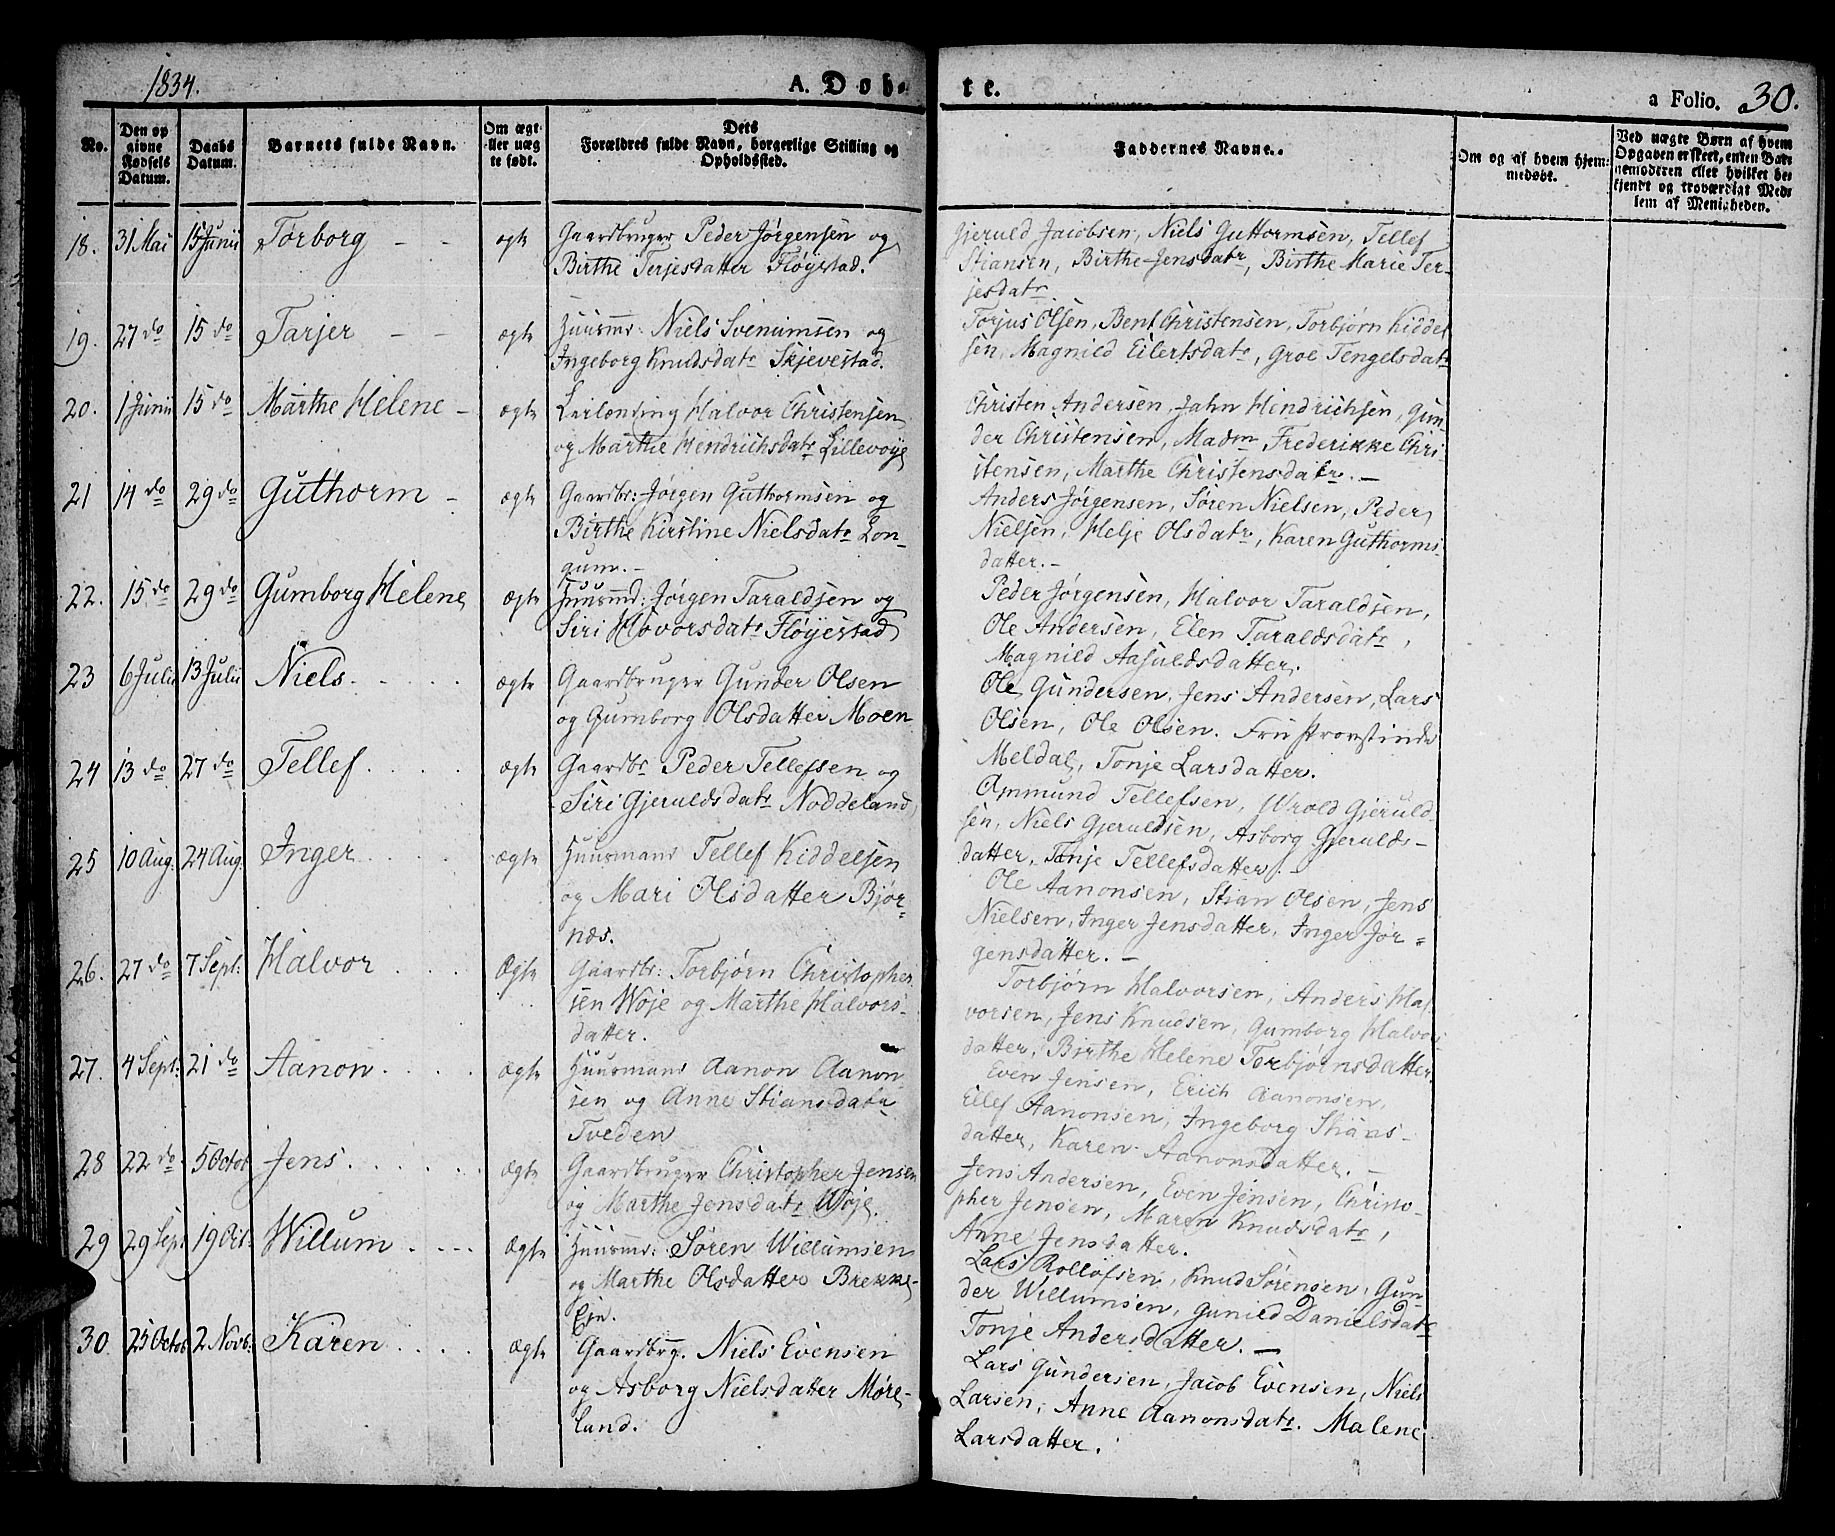 1834.
A. Døb-
te.
a Folio. 30.
No.
Den opgivne Fødsels Datum.
Daabs Datum.
Barnets fulde Navn.
Om ægte eller uægte født.
Dets
Forældres fulde Navn, borgerlige Stilling og
Opholdssted.
Faddernes Navne.
Om og af hvem hjem-
medøbt.
Ved uægte Børn af hvem
Opgaven er skeet, enten Bar-
nemoderen eller hvilket be-
kjendt og troværdigt Med-
lem af Menigheden.
18. 31 Mai 15 Junii Torborg - - ægte Gaardbruger Peder Jørgensen og
Birthe Terjesdatter Fløjestad.
Gjeruld Jacobsen, Niels Guttormsen, Tellef
Stiansen, Birthe Jensdatr, Birthe Marie Ter-
jesdatr
19. 27 do 15 do Tarjer - - ægte Huusmd: Niels Svenumsen og
Ingeborg Knudsdatr Skjevestad.
Torjus Olsen, Bent Christensen, Torbjørn Kiddel
sen, Magnild Eilertsdatr, Groe Tengelsdatr
20. 1 Junii 15 do Marthe Helene - ægte Leilending Halvor Christensen
og Marthe Hendrichsdatr Lillevøye
Christen Andersen, Jahn Hendrichsen, Gun-
der Christensen, Madm Frederikke Chri-
stensen, Marthe Christensdatr. -
21 14 do 29 do Guthorm - ægte Gaardbr: Jørgen Guthormsen og
Birthe Kirstine Nielsdatr Lon-
gum. -
Anders Jørgensen, Søren Nielsen, Peder
Nielsen, Helje Olsdatr, Karen Guthorms-
datter. -
22. 15 do 29 do Gumborg Helene ægte Huusmd: Jørgen Taraldsen og
Siri Hovorsdatr Fløjestad
Peder Jørgensen, Halvor Taraldsen,
Ole Andersen, Elen Taraldsdatr,
Magnild Aasuldsdatter.
23 6 Julii 13 Julii Niels. . . . . ægte Gaardbruger Gunder Olsen
og Gumborg Olsdatter Moen
Ole Gundersen, Jens Andersen, Lars
Olsen, Ole Olsen. Fru Provstinde
Meldal, Tonje Larsdatter.
24 13 do 27 do Tellef . . . ægte Gaardbr Peder Tellefsen og
Siri Gjeruldsdatr Noddeland
Ommund Tellefsen, Wrold Gjeruld-
sen, Niels Gjeruldsen, Asborg Gjerulds-
datter, Tonje Tellefsdatter. -
25 10 Aug. 24 Aug. Inger . . . . ægte Huusmand Tellef Kiddelsen
og Mari Olsdatter Bjor-
næs.
Ole Aanonsen, Stian Olsen, Jens
Nielsen, Inger Jensdatter, Inger Jør-
gensdatter. -
26. 27 do 7 Sept: Halvor . . . Ægte Gaardbr: Torbjørn Christopher
sen Woje og Marthe Halvors-
datter.
Torbjørn Halvorsen, Anders Hal
vorsen, Jens Knudsen, Gumborg Halvors
datter, Birthe Helene Torbjørnsdatter.
27. 4 Sept: 21 do Aanon . . . . ægte Huusmand Aanon Aanon
sen og Anne Stiansdatr
Tveden
Even Jensen, Erich Aanonsen,
Ellef Aanonsen, Ingeborg Stians-
datter, Karen Aanonsdatter. -
28 22 do 5 Octob Jens . . . . . Ægte Gaardbruger Christopher Jensen
og Marthe Jensdatr Woje.
Jens Andersen, Even Jensen, Christo-
pher Jensen, Maren Knudsdatr,
Anne Jensdatter.
29 29 Sept 19 Oct. Willum . . . . Ægte Huusmd: Søren Willumsen
og Marthe Olsdatter Brekke-
Eje.
Lars Rollofsen, Knud Sørensen, Gun-
der Willumsen, Gunild Danielsdatr
Tonje Andersdatter. -
30 25 Octob 2 Novb: Karen . . . . ægte Gaardbrg. Niels Evensen
og Asborg Nielsdatter Møre-
land.
Lars Gundersen, Jacob Evensen, Niels
Larsen, Anne Aanonsdatr. Malene
Larsdatter.